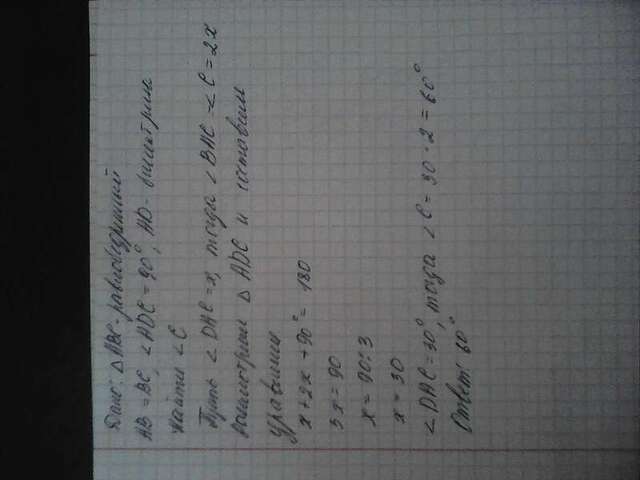 Дано: △ ABC - равнобедренный
AB = BC, ∠ ADC = 90°, AD - биссектриса
Найти ∠ C
Пусть ∠ DAC = x, тогда ∠ BAC = ∠ C = 2x
Рассмотрим △ ADC и составим
уравнение
x + 2x + 90° = 180
3x = 90
x = 90 : 3
x = 30
∠ DAC = 30°, тогда ∠ C = 30 · 2 = 60°
Ответ: 60°